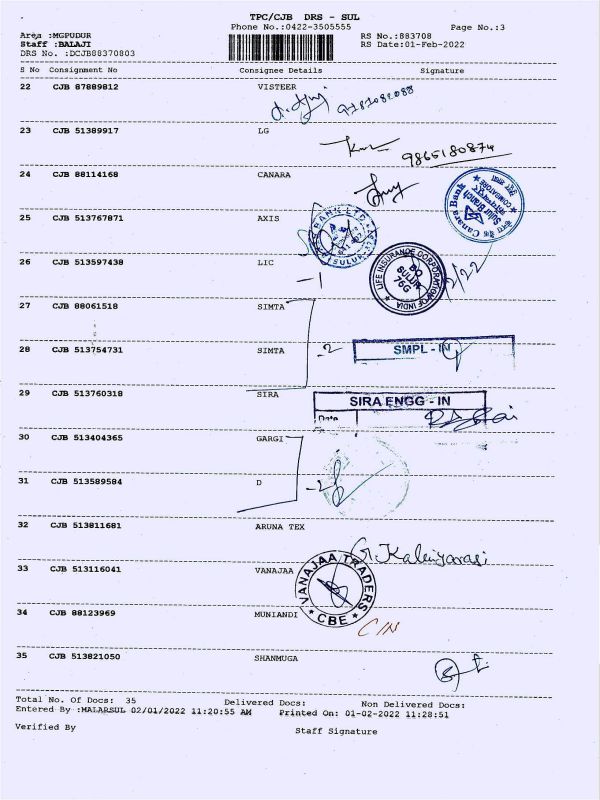 TPC/CJB DRS - SUL
Phone No.:0422-3505555 Page No.:3
Area :MGPUDUR RS No.:883708
Staff :BALAJI RS Date:01-Feb-2022
DRS No. :DCJB88370803
S No Consignment No Consignee Details Signature
22 CJB 87889812 VISTEER
9787082088
23 CJB 51389917 LG
9865180874
24 CJB 88114168 CANARA
Canara Bank
Sulur Branch
COIMBATORE
25 CJB 513767871 AXIS
SULUR
26 CJB 513597438 LIC
LIFE INSURANCE CORPORATION OF INDIA
BO
SULUR
76G
-1
27 CJB 88061518 SIMTA
28 CJB 513754731 SIMTA
-2
SMPL - IN
29 CJB 513760318 SIRA
SIRA ENGG - IN
Date
30 CJB 513404365 GARGI
31 CJB 513589584 D
-2
32 CJB 513811681 ARUNA TEX
G. Kaleiyarasi
33 CJB 513116041 VANAJAA
VANAJAA TRADERS
* CBE *
34 CJB 88123969 MUNIANDI
35 CJB 513821050 SHANMUGA
Total No. Of Docs: 35 Delivered Docs: Non Delivered Docs:
Entered By :MALARSUL 02/01/2022 11:20:55 AM Printed On: 01-02-2022 11:28:51
Verified By Staff Signature